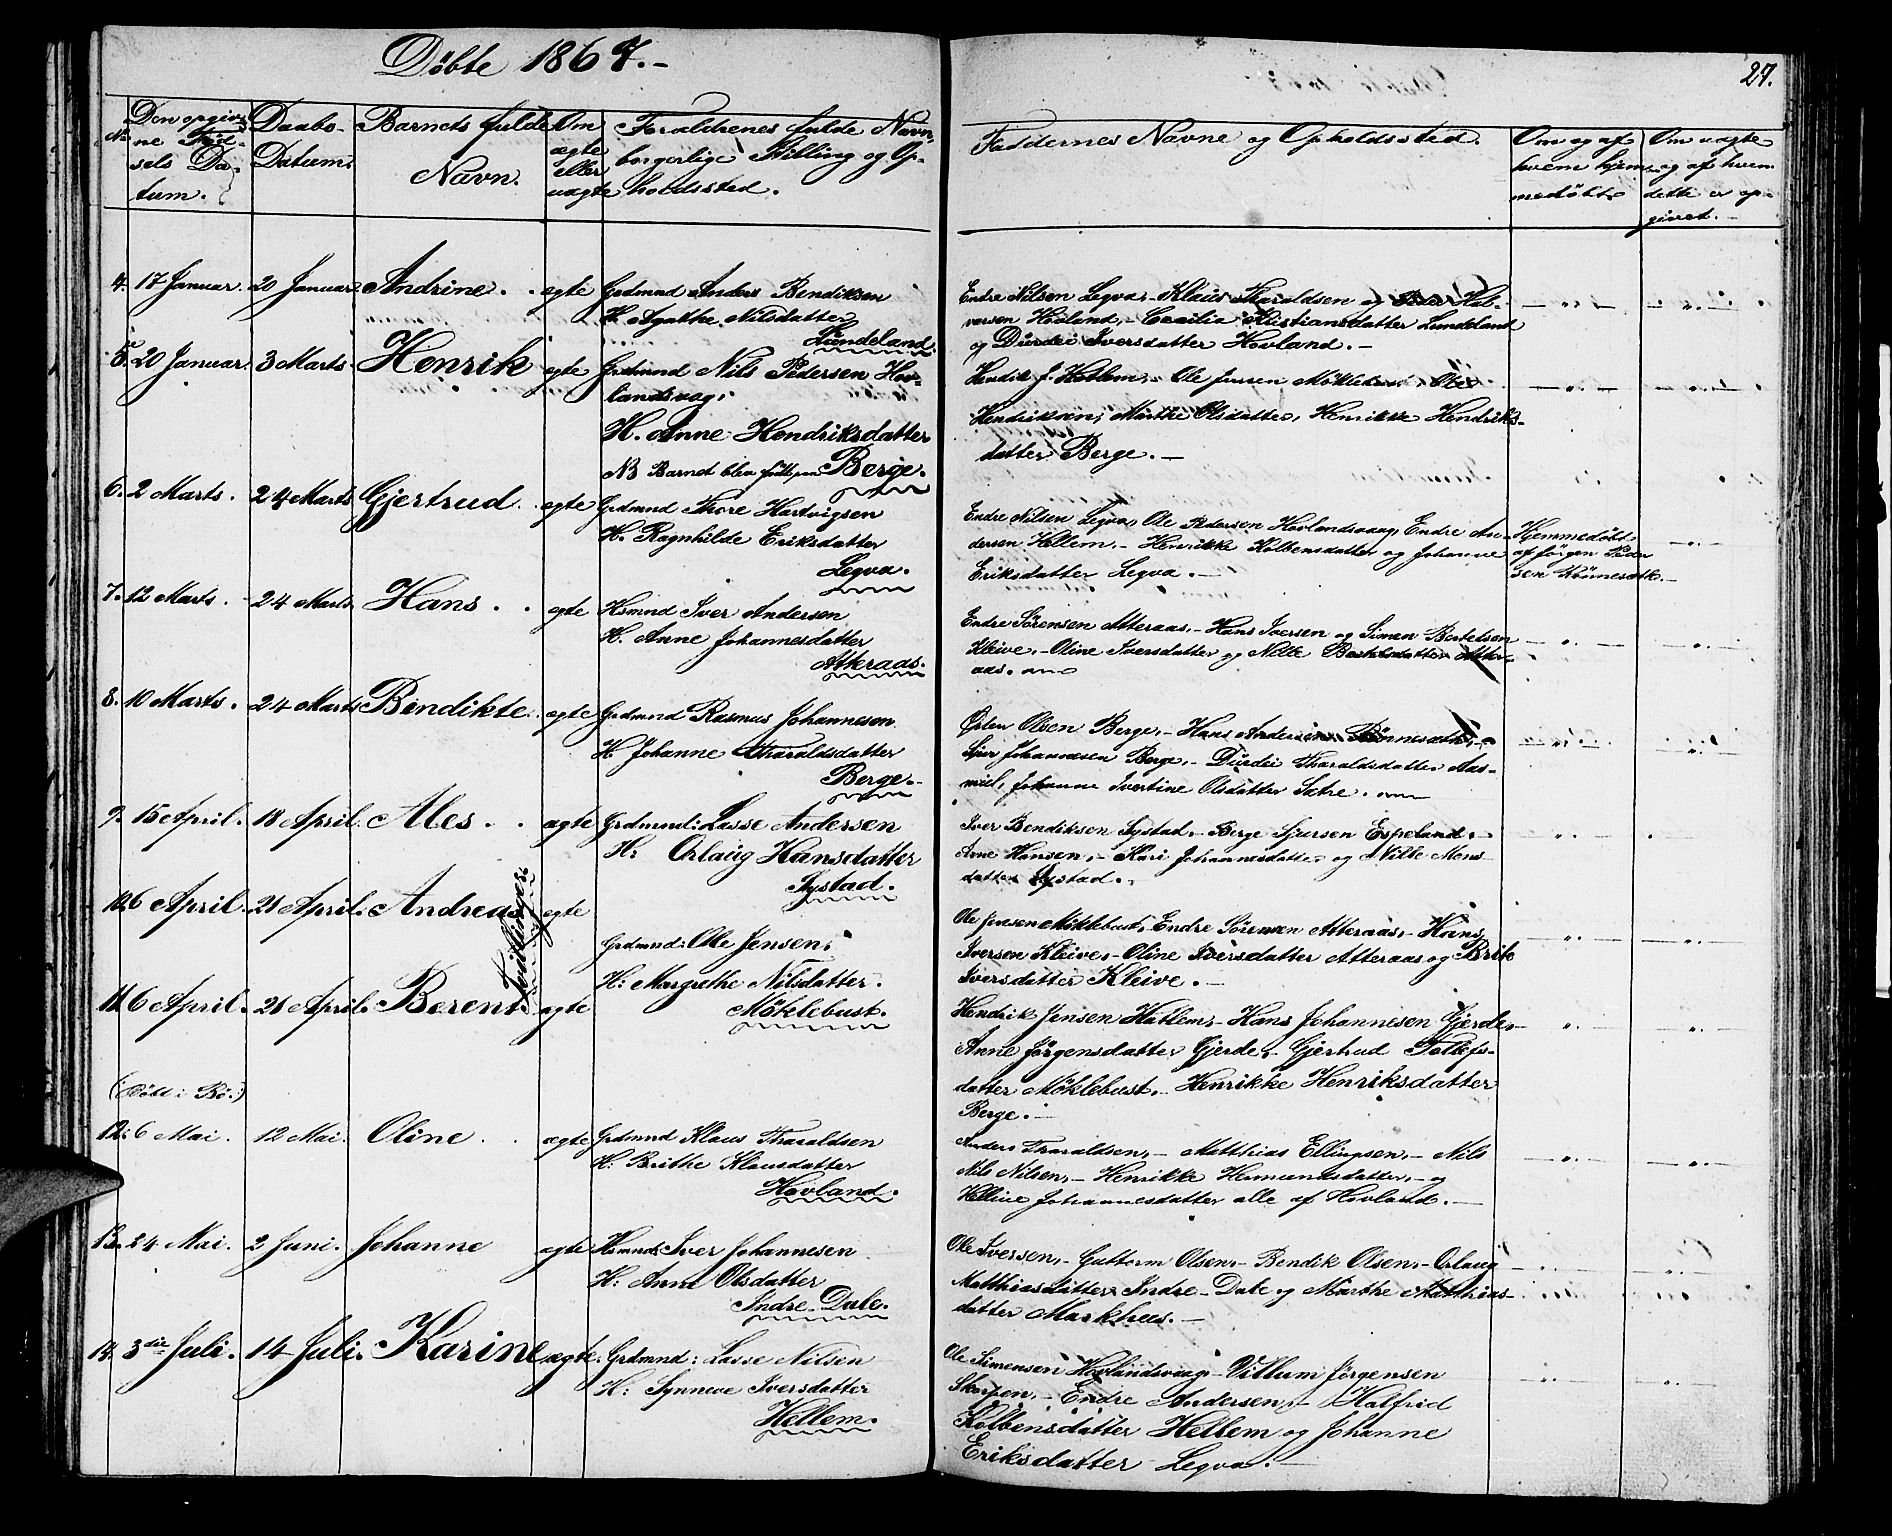 Döbte 1867.-
27.
No
Den opgiv-
ne Föd-
sels Da-
tum.
Daabs-
Datum.
Barnets fulde
Navn.
Om
ægte
eller
uægte
Forældrenes fulde Navn,
borgerlige Stilling og Op-
holdssted.
Faddernes Navne og Opholdssted.
Om og af
hvem hjem-
medöbt
Om uægte
og af hvem
dette er op-
givet.-
4. 17 Januar. 20 Januar Andrine. ægte Grdmnd Anders Bendiksen
H. Agathe Nilsdatter
Lundeland.
Endre Nilsen Legva,- Klaus Tharaldsen og Hal-
versen Hovland,- Cecilia Kristiansdatter Lundeland
og Durdei Iversdatter Hovland.-
5. 20 Januar. 3 Marts. Henrik ægte Grdmnd Nils Pedersen Hov-
landsvag,
H. Anne Hendriksdatter
NB Barnet blev födt paa Berge.
Hendik J. Hatlem,- Ole Jensen Möklebust Ole
Hendriksen, Marthe Olsdatter, Henrikke Hendriks-
datter Berge.-
6. 2 Marts. 24 Marts Gjertrud. ægte Grdmnd Thore Hartvigsen
H. Ragnhilde Eriksdatter
Legva.
Endre Nilsen Legva, Ole Pedersen Hovlandsvaag, Endre An-
dersen Hellem,- Henrikke Kolbensdatter og Johanne
Eriksdatter Legva.-
Hjemmedöbt
af Jörgen Peder
sen Rönnesæth.-
7. 12 Marts. 24 Marts Hans. ægte Hsmnd Iver Andersen
H. Anne Johannesdatter
Atteraas.
Endre Sörensen Atteraas,- Hans Iversen og Simen Bertelsen
Kleive,- Oline Iversdatter og Nille Bertelsdatter Atter-
aas.
8. 10 Marts. 24 Marts Bendikte. ægte Grdmnd Rasmus Johannesen
H Johanne Tharaldsdatter
Berge.-
Olsen Berge,- Hans Andersen Rönnesæth,-
Johannesen Berge,- Durdei Tharaldsdatter Aas-
mul, Johanne Ivertine Olsdatter Sætre.
9. 15 April. 18 April. Ales. ægte Grdmnd: Lasse Andersen
H: Orlaug Hansdatter
Systad.
Iver Bendiksen Systad,- Berge Sjursen Espeland,-
Arne Hansen,- Kari Johannesdatter og Nille Mons-
datter Systad.
10. 6 April. 21 April. Andreas ægte
Tvillinger.
Grdmnd: Ole Jensen,
H: Margrethe Nilsdatter.
Möklebust.
Ole Jensen Möklebust,- Endre Sörensen Atteraas,- Hans
Iversen Kleive,- Oline Iversdatter Atteraas og Brite
Iversdatter Kleive.-
11. 6 April. 21 April. Berent ægte
Hendrik Jensen Hatlem,- Hans Johannesen Gjerde,-
Anne Jörgensdatter Gjerde,- Gjertrud Tollefs-
datter Möklebust,- Henrikke Henriksdatter
Berge.-
(Döbt i Bö.)
12. 6 Mai. 12 Mai. Oline. ægte Grdmnd Klaus Tharaldsen
H: Brithe Klausdatter
Hovland.
Anders Tharaldsen,- Matthias Ellingsen,- Nils
Nils Nilsen,- Henrikke Hermundsdatter,- og
Helline Johannesdatter alle af Hovland.-
13. 24 Mai. 2 Juni. Johanne ægte Hsmnd: Iver Johannesen
H: Anne Olsdatter
Indre-Dale.
Ole Iversen,- Guttorm Olsen,- Bendik Olsen,- Orlaug
Matthiasdatter Indre-Dale og Marthe Matthias-
datter Markhus.-
14. 3die Juli. 14 Juli. Karine ægte. Grdmnd: Lasse Nilsen
H: Synneve Iversdatter
Hellem.
Ole Simensen Hovlandsvaag,- Villum Jörgensen
Skorpen,- Endre Andersen,- Halfrid
Kolbensdatter Hellem og Johanne
Eriksdatter Legva.-